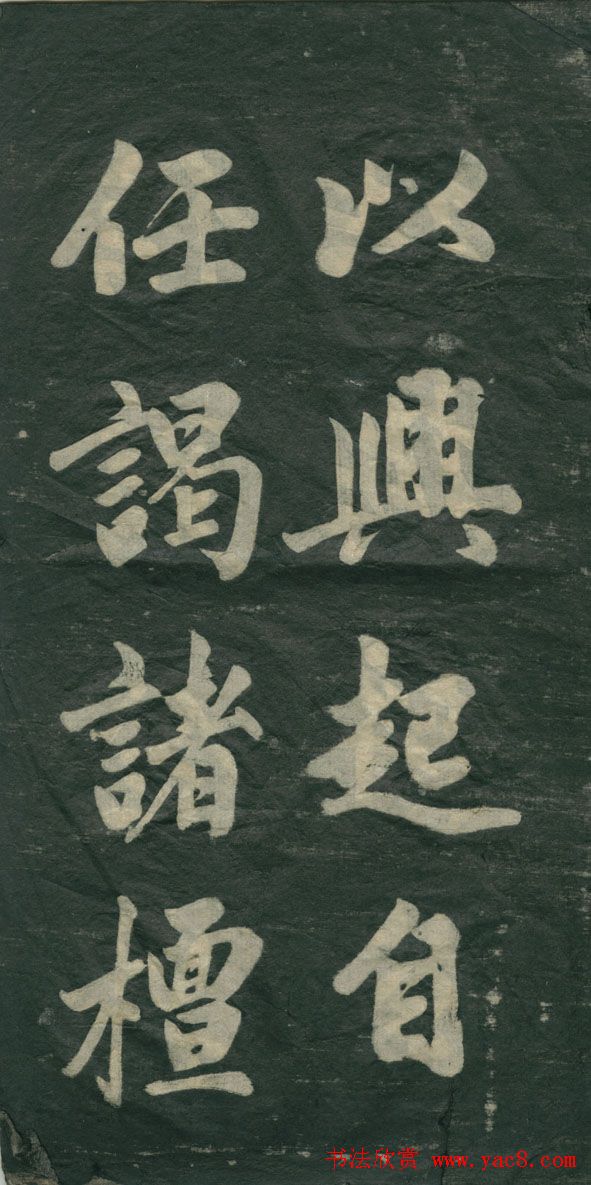 以興起自
任謁諸檀
书法欣赏 www.yac8.com